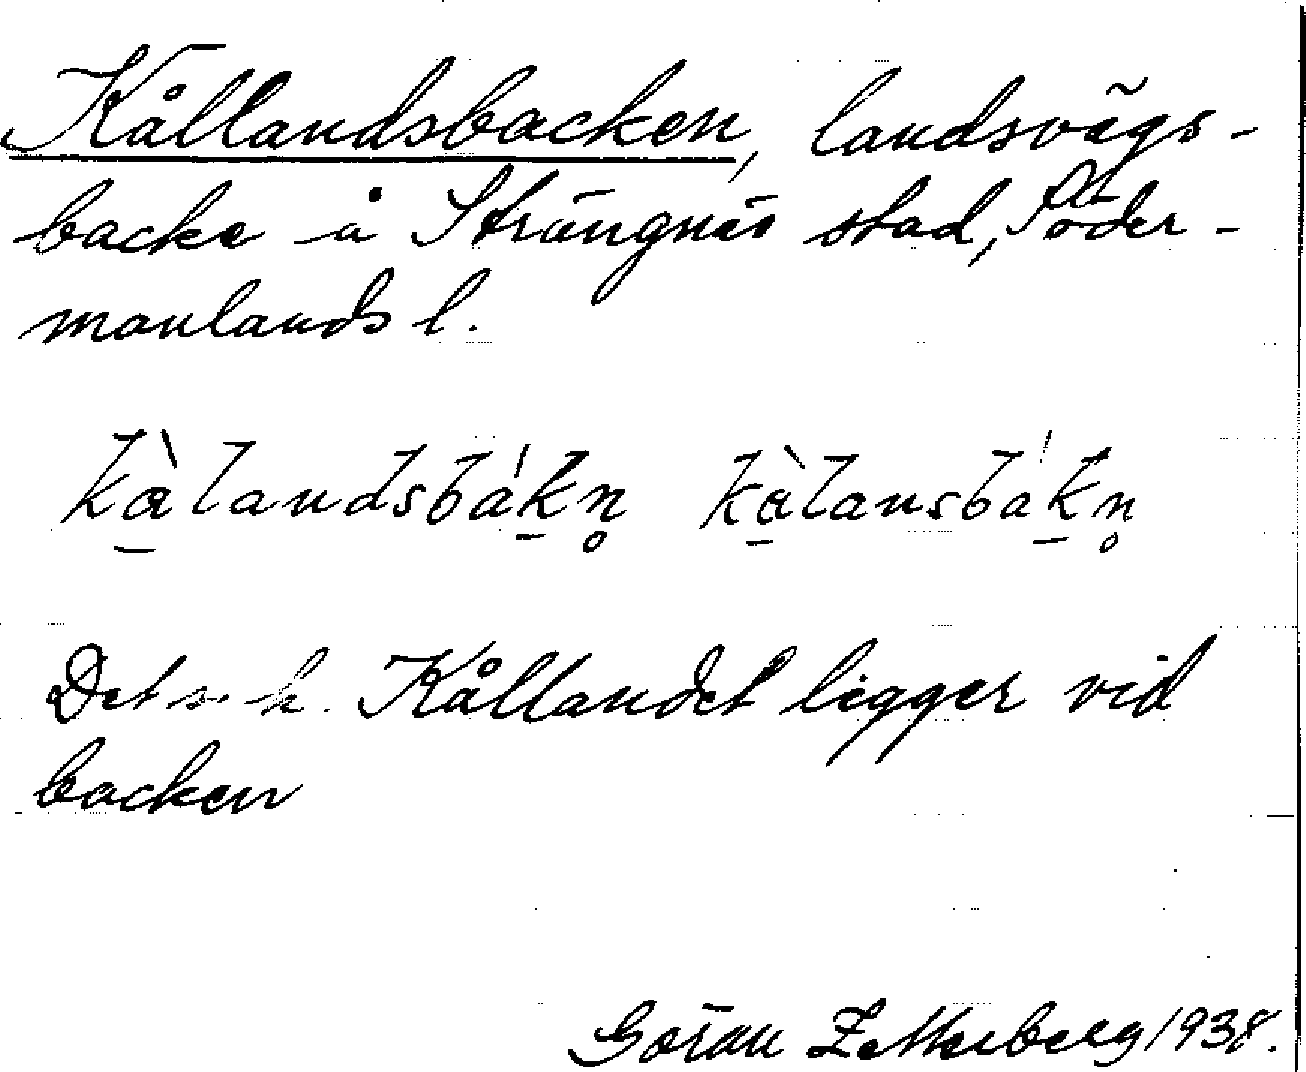 Kållandsbacken, landsvägs-
backe i Strängnäs stad, Söder-
manlands l.
kàlandsbákn̥ kàlansbákn̥
Det s. k. Kållandet ligger vid
backen
Göran Zetterberg 1938.